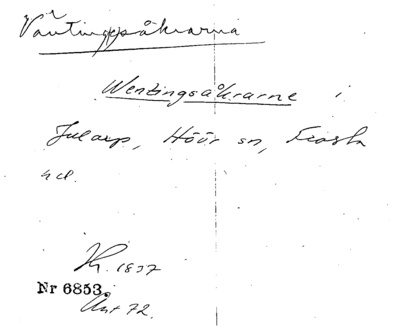 Väntingsåkrarna
Wentingsåkrarne i
Jularp, Höör sn, Frosta
hd.
Kr. 1837
Nr 6853.
Akt 72.